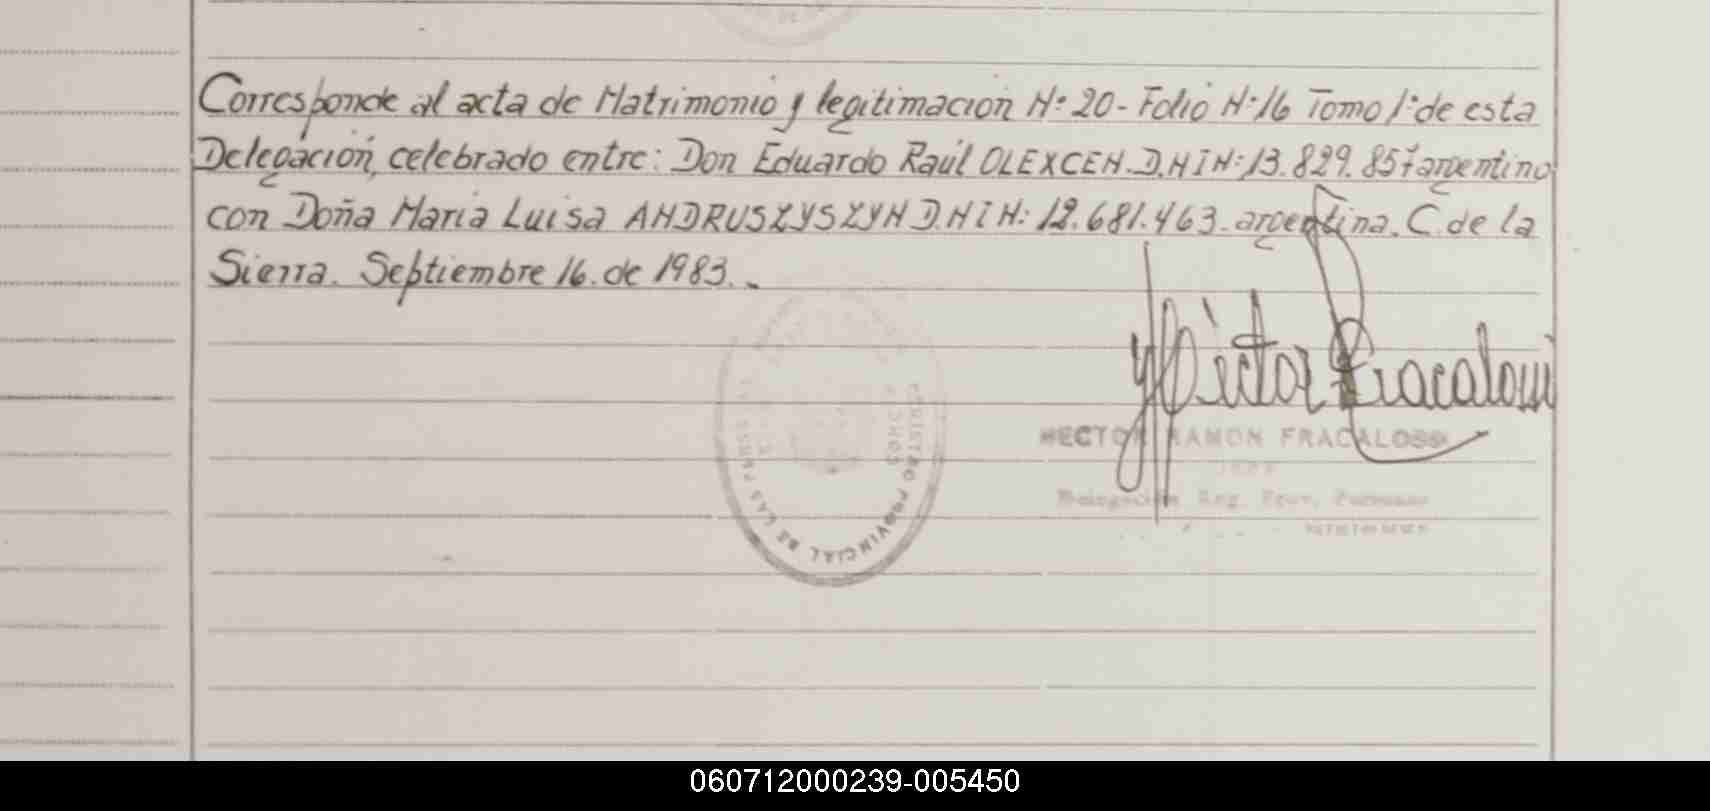 Corresponde al acta de Matrimonio y legitimación N: 20 - Folio N: 16 Tomo 1: de esta
Delegación, celebrado entre: Don Eduardo Raúl OLEXCEN. D.N.I N: 13.829.857 argentino
con Doña María Luisa ANDRUSZYSZYN D.N.I N: 12.681.463. argentina. C. de la
Sierra. Septiembre 16. de 1983. -
Héctor Fracalossi
HECTOR RAMON FRACALOSSI
JEFE
Delegación Reg. Prov.
PROVINCIAL DE LAS PERS
060712000239-005450